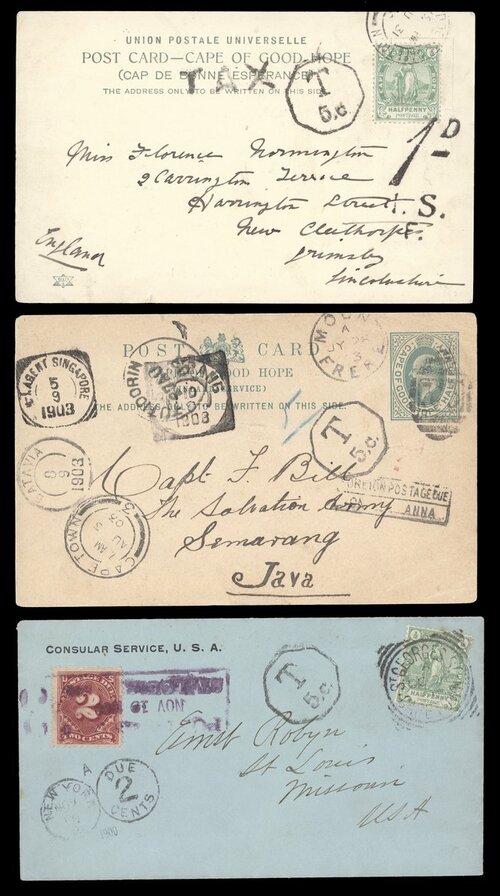 UNION POSTALE UNIVERSELLE
POST CARD—CAPE OF GOOD HOPE
(CAP DE BONNE ESPERANCE)
THE ADDRESS ONLY TO BE WRITTEN ON THIS SIDE
TAX
T
5.c.
HALFPENNY
POSTAGE
1D
Miss Florence Normington
2 Carrington Terrace
Harrington Street
I.S.
New Cleethorpes
F.
Grimsby
England
Lincolnshire
POST CARD
GOOD HOPE
THE ADDRESS ONLY TO BE WRITTEN ON THIS SIDE.
MOUNT
FRERE
CAPE OF GOOD HOPE
AGENT SINGAPORE
5
9
1903
1903
T
5.c.
BATAVIA
9
1903
FOREIGN POSTAGE DUE
ANNA
CAPE TOWN
AU
03
Capt F. Bill
The Salvation Army
Semarang
Java
CONSULAR SERVICE, U. S. A.
POSTAGE DUE
2
TWO CENTS
NOV 10
T
5.c.
ST GEORGES ST
HALFPENNY
Ernst Robyn
St Louis
Missouri
USA
A
NEW YORK
DUE
2
CENTS
1900